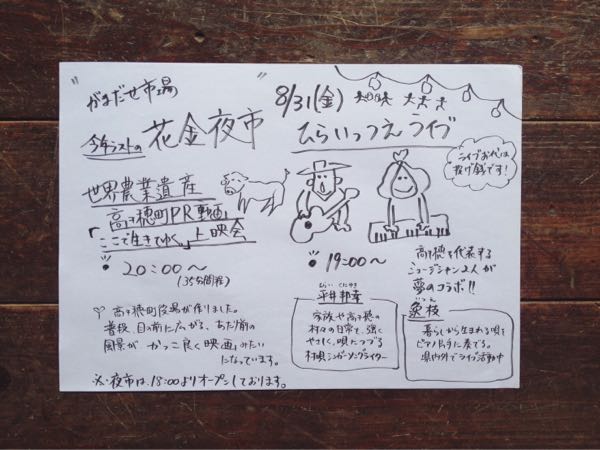 "がまだせ市場"
今年ラストの 花金夜市
世界農業遺産
高千穂町PR動画
「ここで生きてゆく」上映会
20:00〜
(35分間程)
高千穂町役場が作りました。
普段、目の前に広がる、あたり前の
風景が かっこ良く映画みたい
になっています。
※夜市は、18:00よりオープンしております。
8/31(金)
ひらいっつえライブ
ライブお代は
投げ銭です!
19:00〜
高千穂を代表する
ミュージシャン2人が
夢のコラボ!!
ひらい くにゆき
平井邦幸
家族や高千穂の
村々の日常で、強く
やさしく、唄につづる
村唄シンガーソングライター
いつえ
暮らしから生まれる唄を
ピアノ片手に奏でる。
県内外でライブ活動中